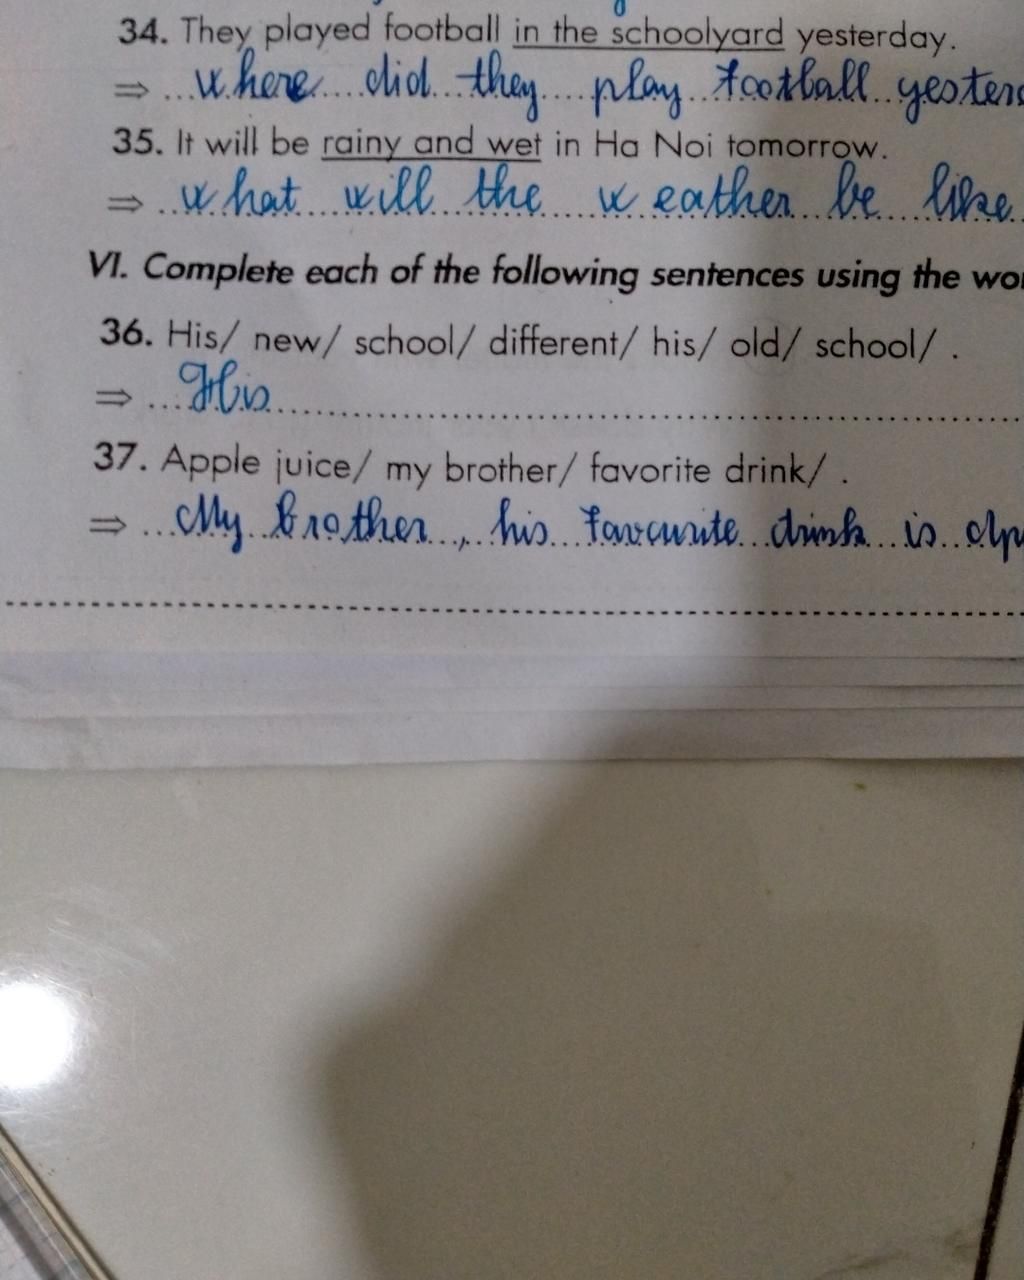 34. They played football in the schoolyard yesterday.
⇒ where did they play football
35. It will be rainy and wet in Ha Noi tomorrow.
⇒ what will the weather be like
VI. Complete each of the following sentences using the
36. His/ new/ school/ different/ his/ old/ school/ .
⇒ His
37. Apple juice/ my brother/ favorite drink/ .
⇒ My brother, his favourite drink is